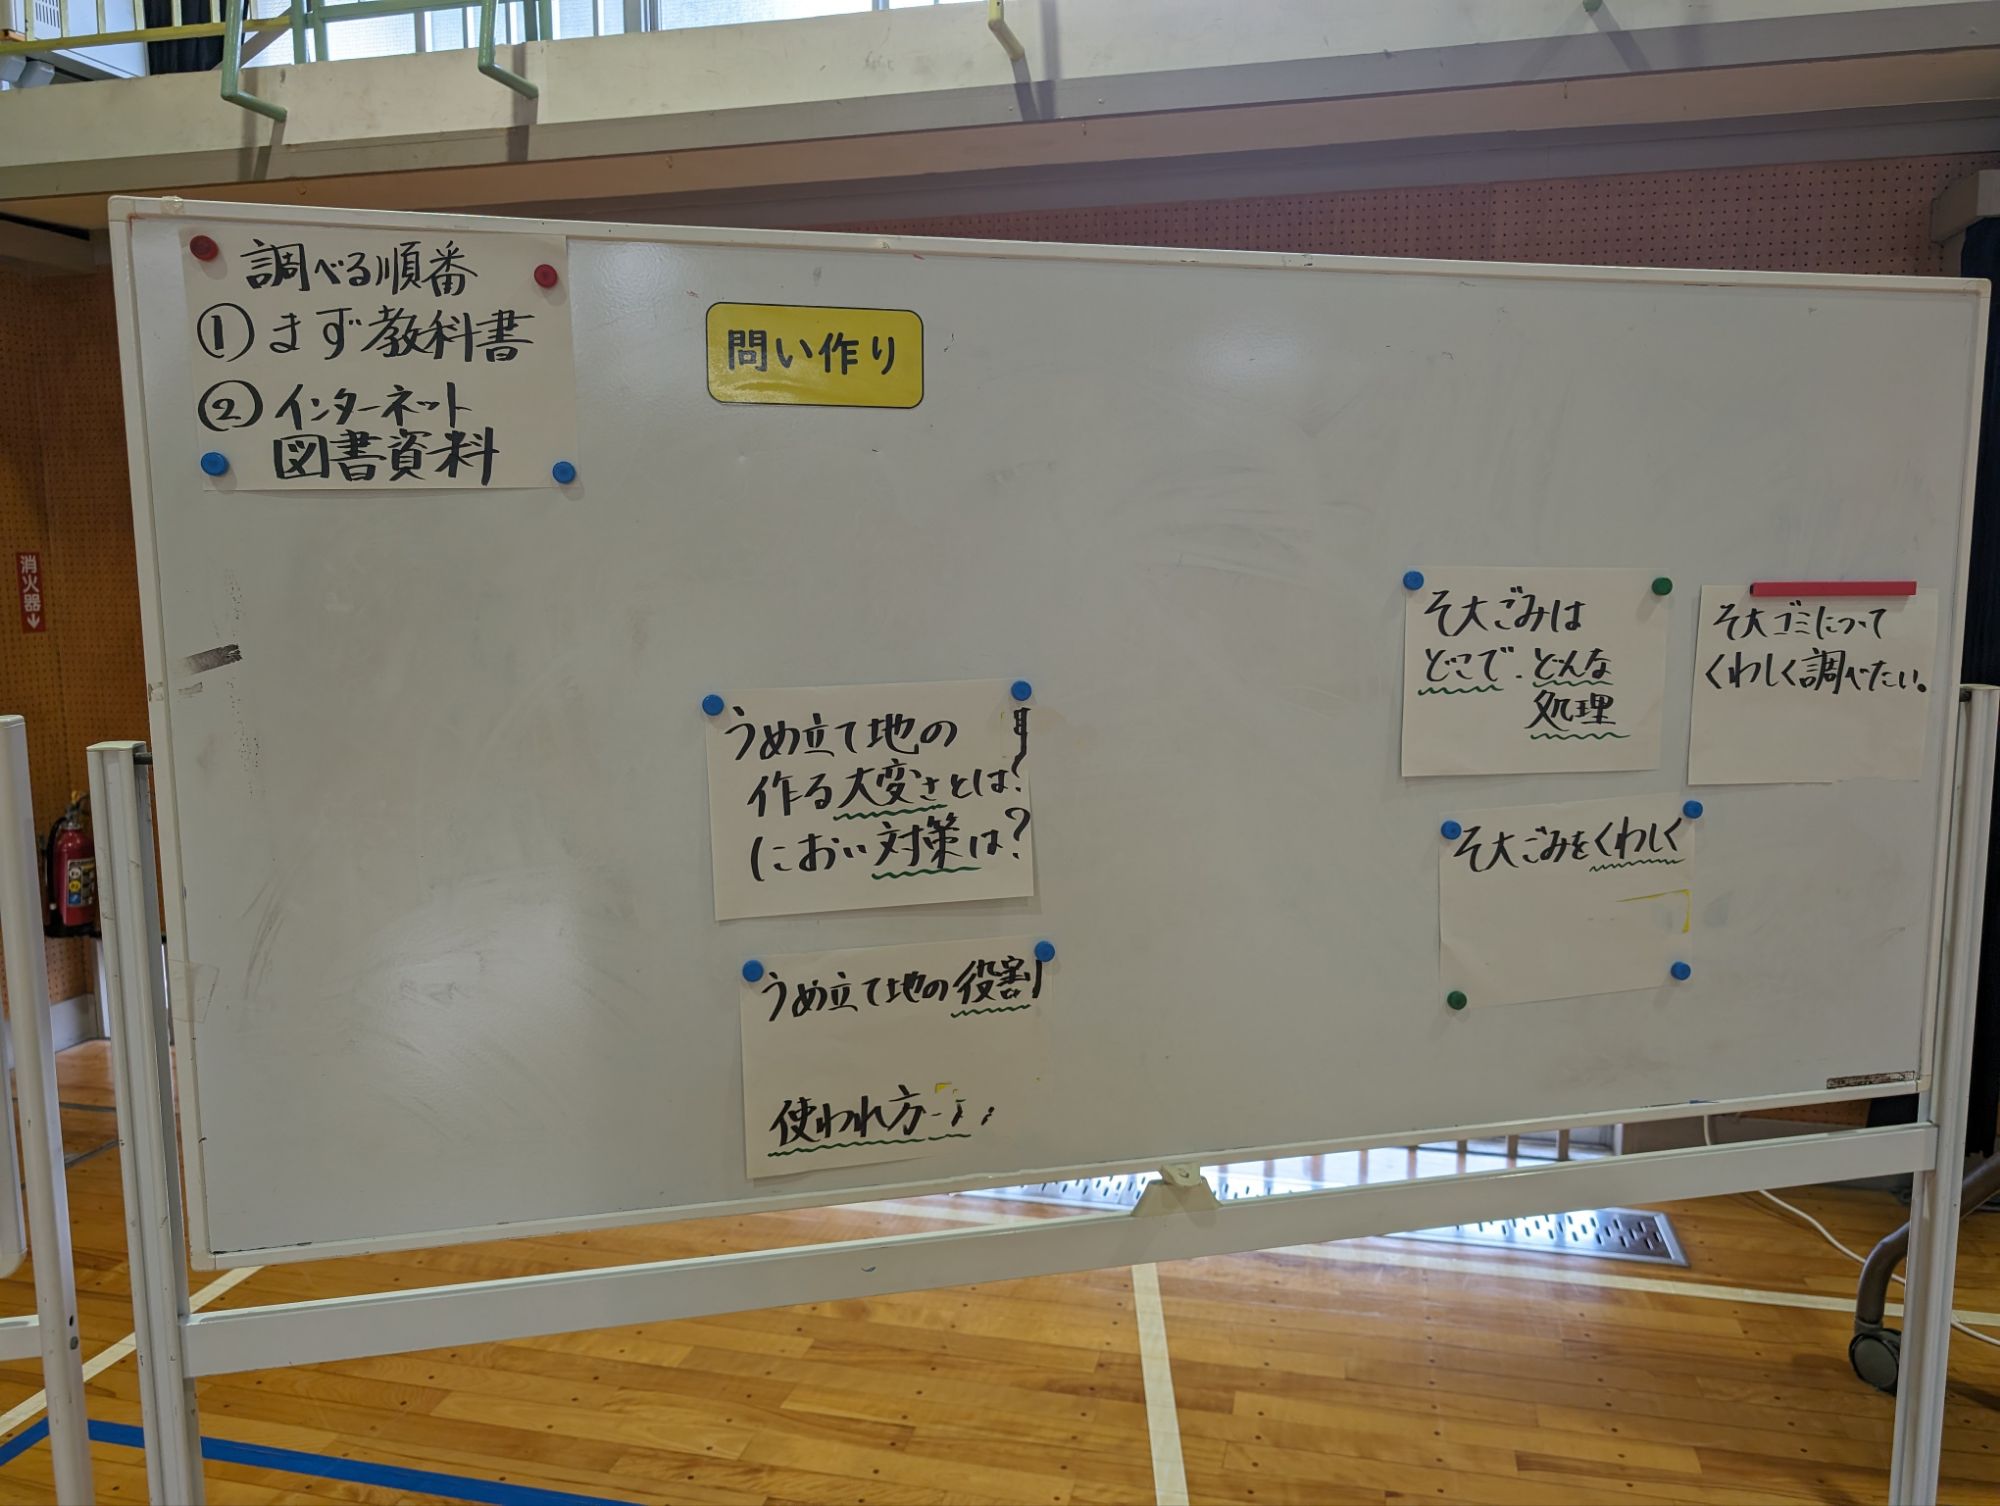 調べる順番
① まず教科書
② インターネット
図書資料
問い作り
消火器
うめ立て地の
作る大変さとは?
におい対策は?
うめ立て地の役割
使われ方
そ大ごみは
どこで、どんな
処理
そ大ゴミについて
くわしく調べたい。
そ大ごみをくわしく